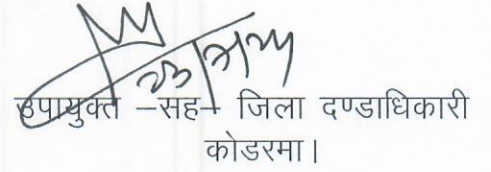 उपायुक्त –सह– जिला दण्डाधिकारी
कोडरमा।